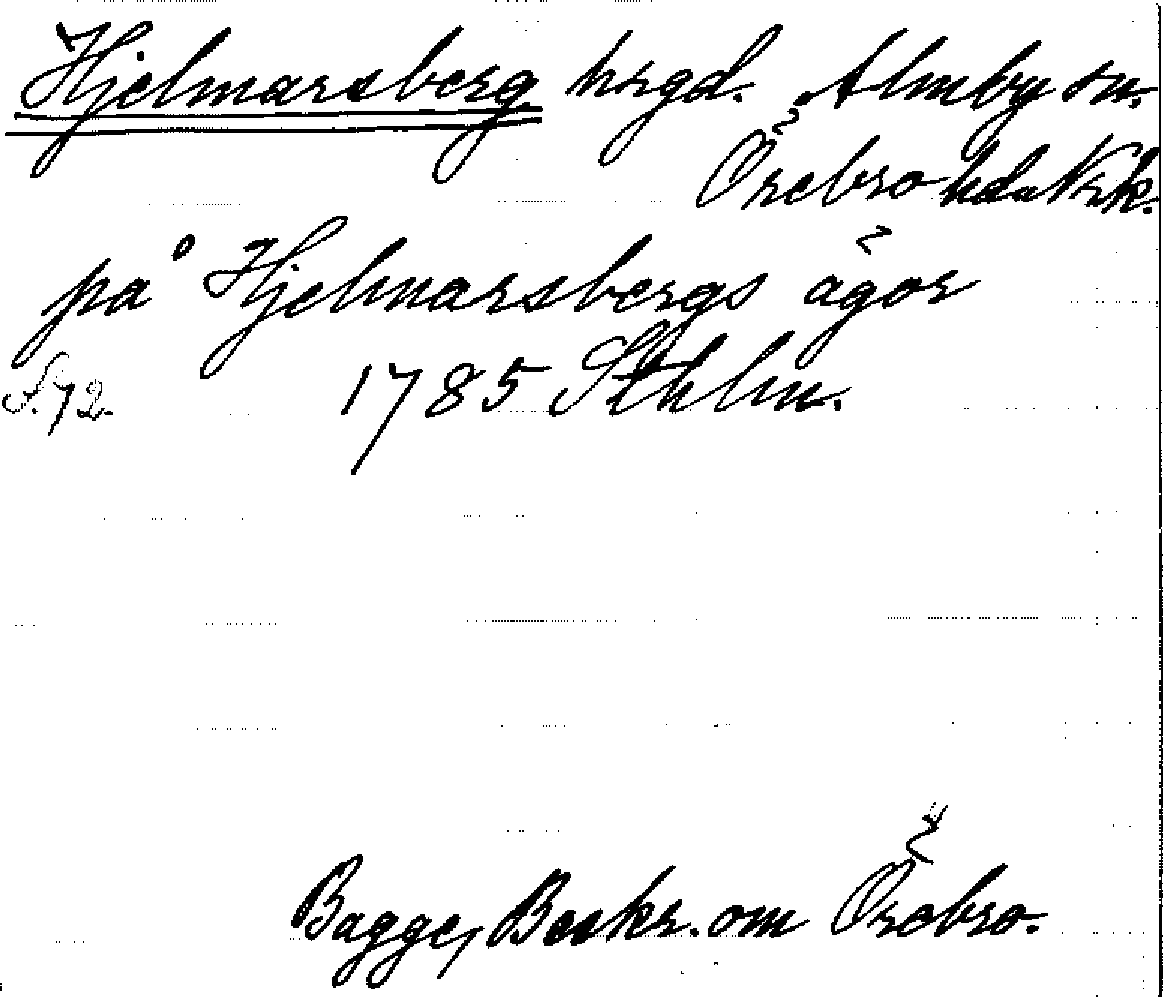 Hjelmarsberg hrgd. Almby sn.
Örebro hd. Nrk.
på Hjelmarsbergs ägor
S. 72. 1785 Sthlm.
Bagge, Beskr. om Örebro.